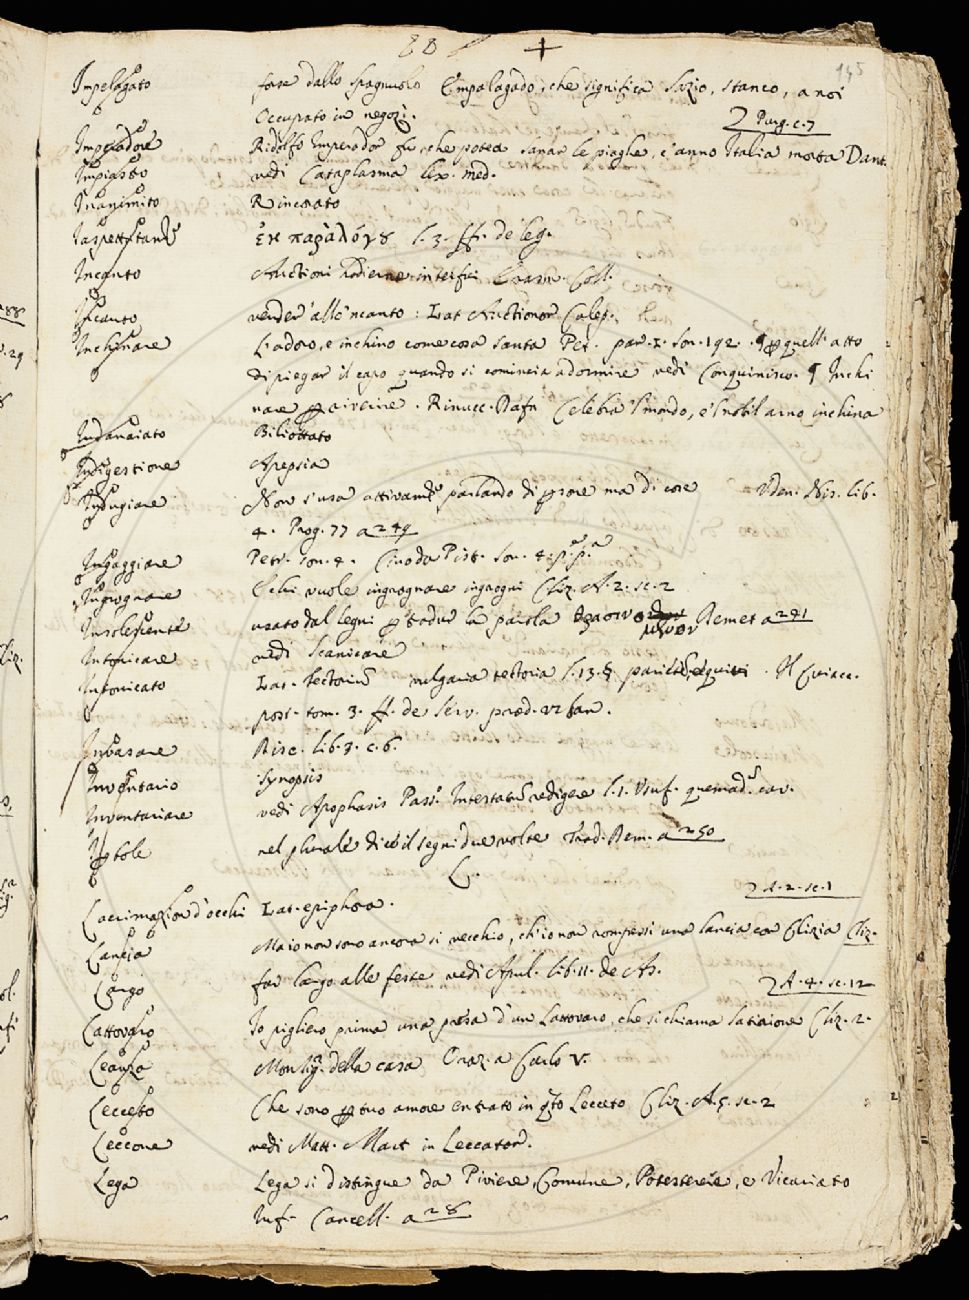 145
Impelagato forse dallo spagnuolo Empalagado, che significa sazio, stanco, a noi
Occupato in negozi.
Purg. c. 7
Imperadore Ridolfo Imperador fu, che potea sanar le piaghe, c'anno Italia morta Dant.
Impiastro vedi Cataplasma lex. med.
Inanimito Rincorato
l. 3. ff. de leg.
Incanto Auctioni hodierne interfui Erasm. Coll.
Incanto vender all'incanto: Lat Auctionor Calep.
Inchinare L'adoro, e inchino come cosa santa Pet. par. 1. son. 192. ¶ quell'atto
di piegar il capo quando si comincia a dormire vedi Conquinisco. ¶ Inchi
nare . Rinucc. Dafn Celebra 'l mondo, e 'l nobil arno inchina
Indanaiato Biliottato
Indigestione Apepsia
Indugiare Non s'usa parlando di ma di cose Uden. Nis. lib.
4. Prog. 77 a 249
Ingaggiare Petr. son. 4. Cino da Pist. son. 4. p. p.
Ingrognare E chi vuole ingrognare ingrogni Cliz. A. 2. sc. 2
usato dal Segni la parola Demet a 241
Intonicare vedi scanicare
Intonicato Lat. tectorium vulgaria tectoria l. 13. §. . Il Cuiacc.
post. tom. 3. ff. de serv. pred. urban.
Invasare Risc. lib. 8. c. 6.
Inventario Synopsis
Inventariare vedi Apophasis Pass. redigere l. 1. Usuf. quemad. cav.
nel plurale il Segni due volte Trad. Dem. a 250
L.
A. 2. sc. 1
Lacrimazion d'occhi Lat. epiphora.
Lancia Ma io non sono ancora si vecchio, ch'io non rompessi una lancia con Clizia Cliz.
Largo far largo alle feste vedi Apul. lib. 11. de As.
A. 4. sc. 12
Lattovaro Io piglierò prima una presa d'un Lattovaro, che si chiama satirione Cliz. 2.
Leanza della casa Oraz. a Carlo V.
Lecceto Che sono tuo amore entrato in Lecceto Cliz. A. 5. sc. 2
Leccone vedi Matt. Mart in Leccator.
Lega Lega si distingue da Piviere, Comune, Potesterie, e Vicariato
Inf. Cancell. a 28